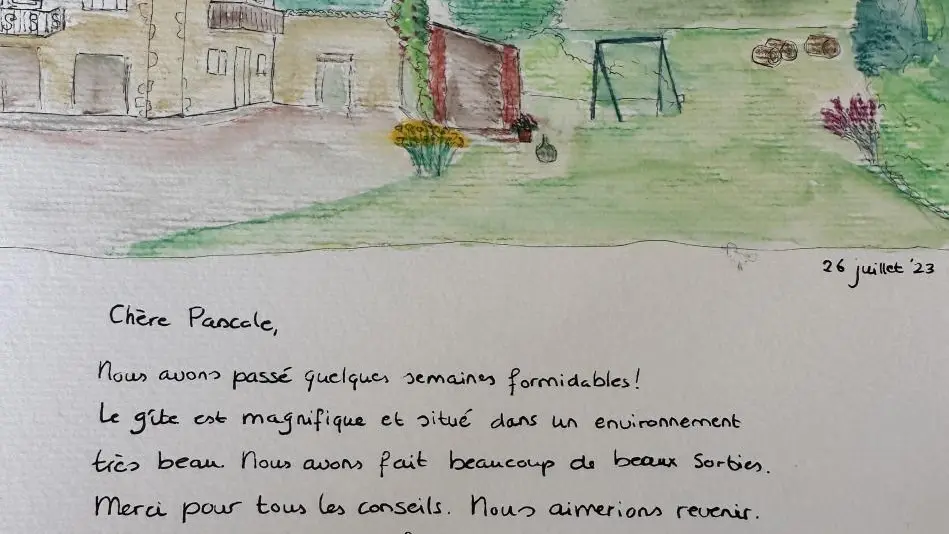 26 juillet '23
Chère Pascale,
Nous avons passé quelques semaines formidables!
Le gîte est magnifique et situé dans un environnement
très beau. Nous avons fait beaucoup de beaux sorties.
Merci pour tous les conseils. Nous aimerions revenir.